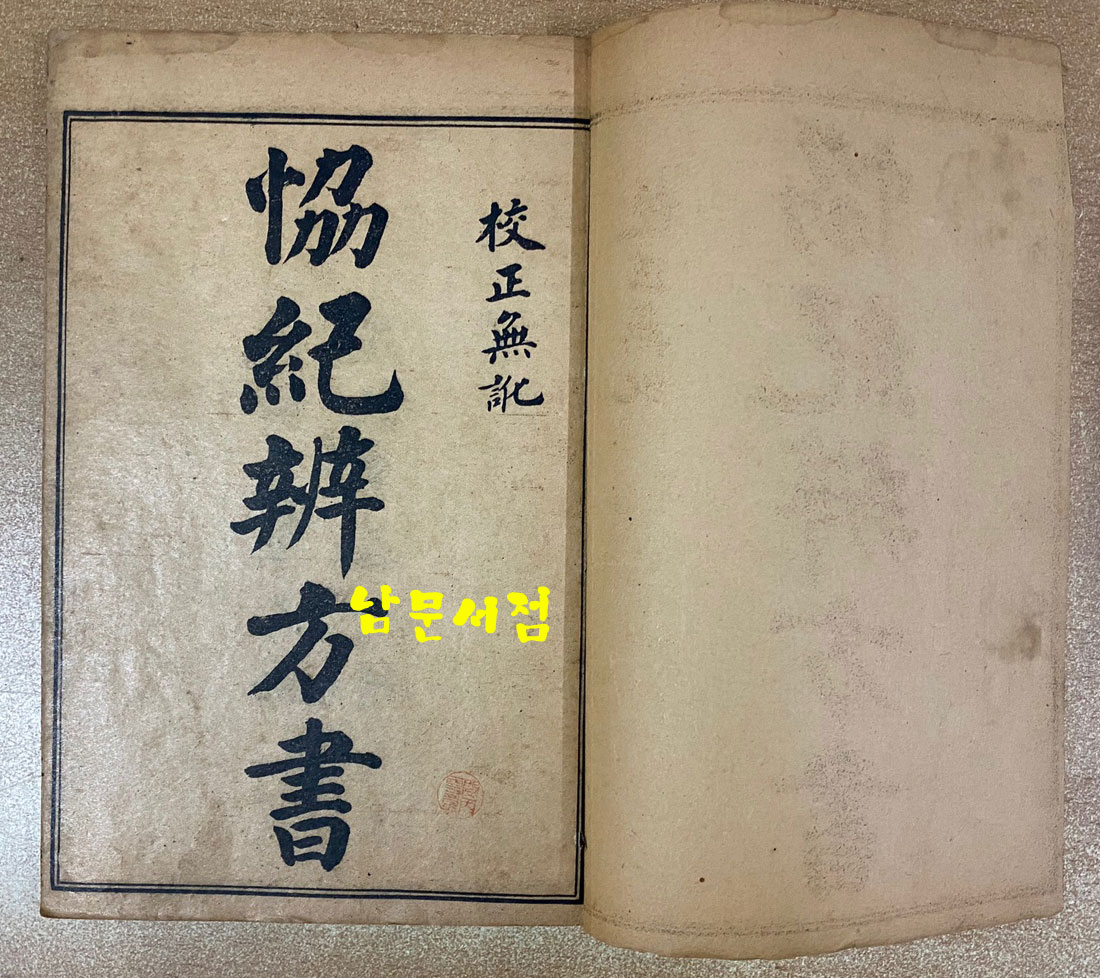 校正無訛
恊紀辨方書
남문서점